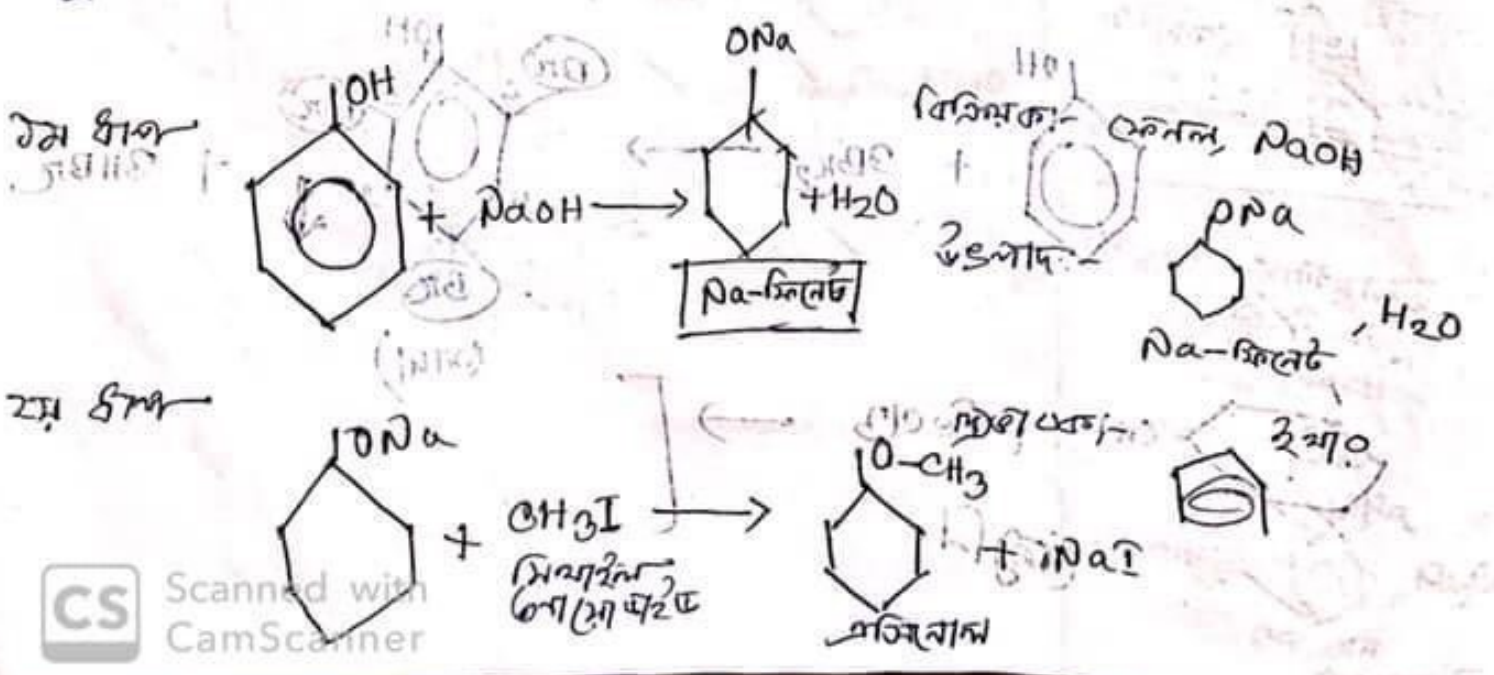 ১ম ধাপ
OH
+ NaOH → ONa + H2O
Na-ফিনেট
বিক্রিয়ক:- ফেনল, NaOH
উৎপাদ:- ONa
Na-ফিনেট, H2O
২য় ধাপ
ONa
+ CH3I → O-CH3 + NaI
মিথাইল আয়োডাইড
CS Scanned with
CamScanner